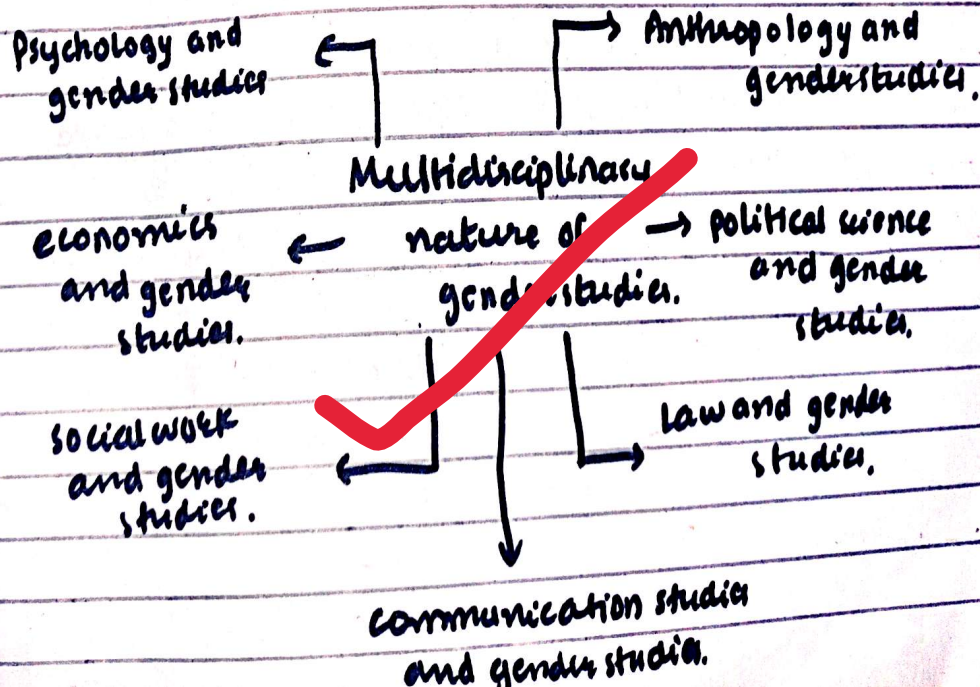 Psychology and
gender studies
Anthropology and
genderstudies.
Multidisciplinary
nature of
genderstudies.
economics
and gender
studies.
political science
and gender
studies.
social work
and gender
studies.
law and gender
studies.
communication studies
and gender studies.